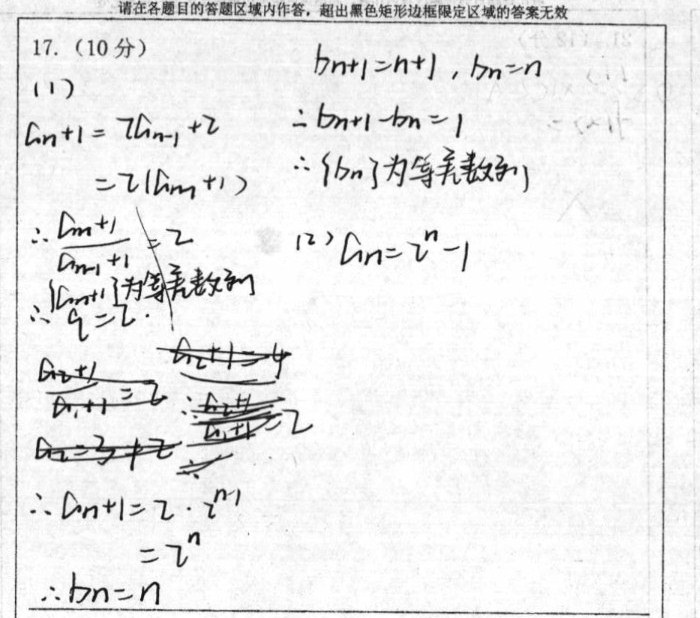 请在各题目的答题区域内作答，超出黑色矩形边框限定区域的答案无效
17.（10分）
(1)
an+1=2an-1+2
=2(an-1+1)
∴ (an+1)/(an-1+1) = 2
{an+1}为等差数列
∴ q=2.
(a2+1)/(a1+1) = 2
a2=3+2
a2+1=4
∴ (a2+1)/(a1+1) = 2
∴ an+1=2·2^(n-1)
=2^n
∴ bn=n
bn+1=n+1, bn=n
∴ bn+1-bn=1
∴ {bn}为等差数列
(2) an=2^n-1